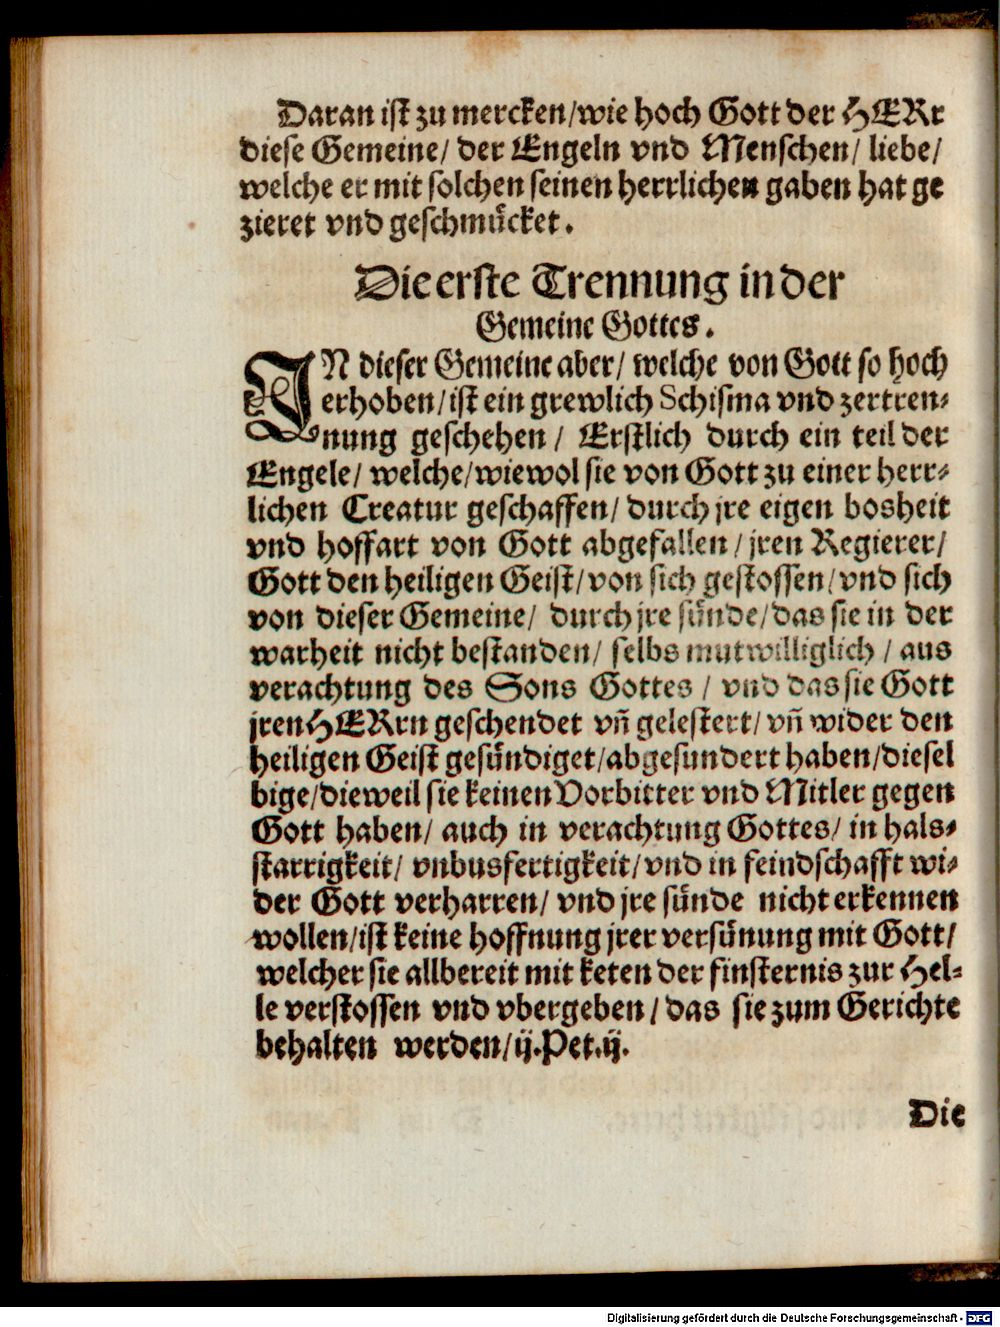 Daran ist zu mercken/wie hoch Gott der HERr
diese Gemeine/ der Engeln vnd Menschen/ liebe/
welche er mit solchen seinen herrlichen gaben hat ge
zieret vnd geschmücket.
Die erste Trennung in der
Gemeine Gottes.
IN dieser Gemeine aber/ welche von Gott so hoch
erhoben/ist ein grewlich Schisma vnd zertren-
nung geschehen/ Erstlich durch ein teil der
Engele/ welche/wiewol sie von Gott zu einer herr-
lichen Creatur geschaffen/ durch jre eigen bosheit
vnd hoffart von Gott abgefallen/jren Regierer/
Gott den heiligen Geist/von sich gestossen/vnd sich
von dieser Gemeine/ durch jre sünde/das sie in der
warheit nicht bestanden/ selbs mutwilliglich/ aus
verachtung des Sons Gottes/ vnd das sie Gott
jren HERrn geschendet vñ gelestert/vñ wider den
heiligen Geist gesündiget/abgesundert haben/diesel
bige/dieweil sie keinen Vorbitter vnd Mitler gegen
Gott haben/ auch in verachtung Gottes/ in hals-
starrigkeit/ vnbusfertigkeit/vnd in feindschafft wi-
der Gott verharren/ vnd jre sünde nicht erkennen
wollen/ist keine hoffnung jrer versünung mit Gott/
welcher sie allbereit mit keten der finsternis zur Hel-
le verstossen vnd vbergeben/das sie zum Gerichte
behalten werden/ij.Pet.ij.
Die
Digitalisierung gefördert durch die Deutsche Forschungsgemeinschaft - DFG